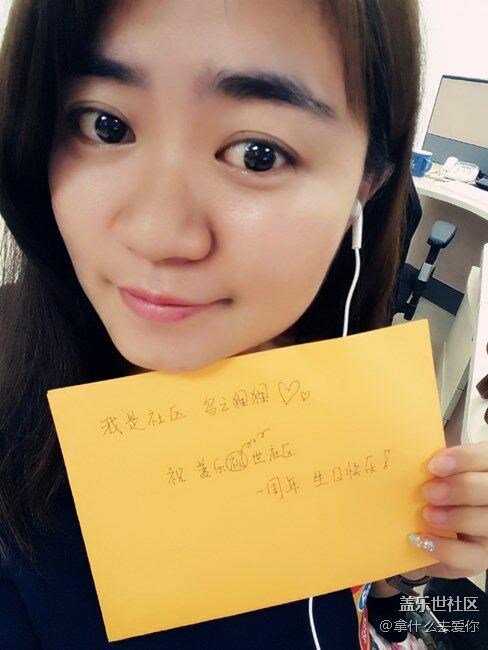 我是社区 乌云狸狸♡♡
祝 盖乐世社区
一周年 生日快乐！
盖乐世社区
@拿什么去爱你